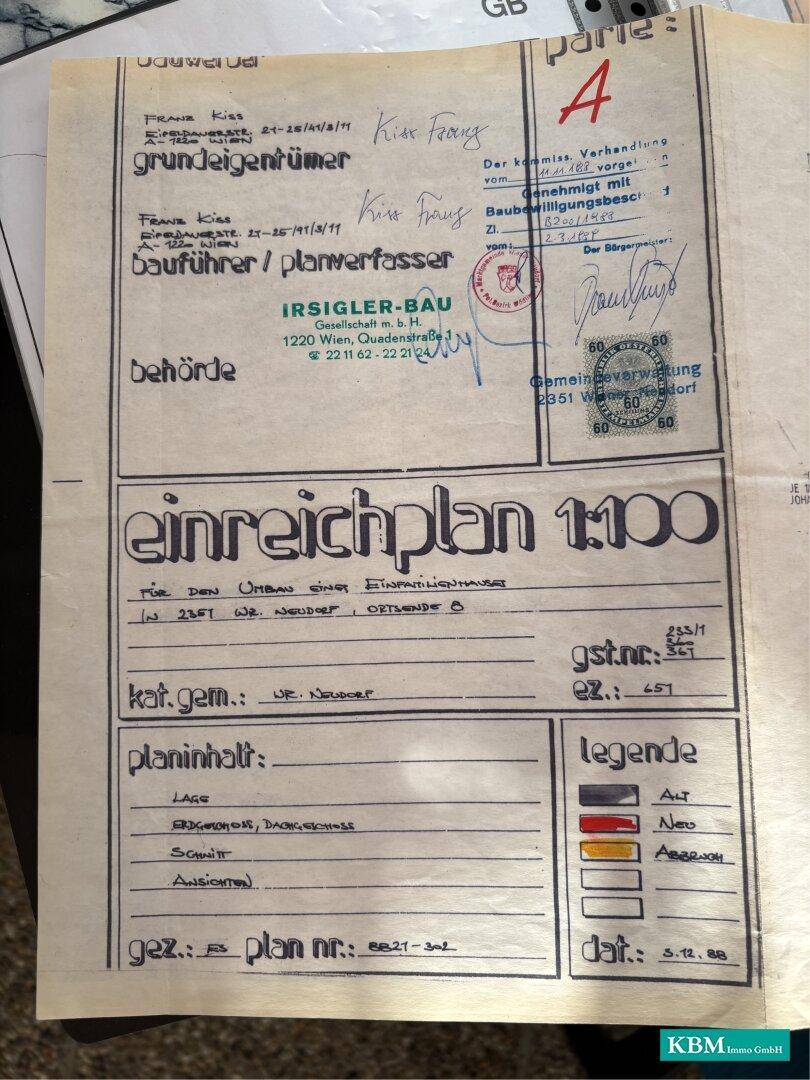 GB
bauwerber
parie:
A
FRANZ KISS
EIPELDAUERSTR. 21-25/41/3/11
A-1220 WIEN
Kiss Franz
grundeigentümer
Der kommiss. Verhandlung
vom 11.11.188 vorgel n
Genehmigt mit
Baubewilligungsbesch d
Zl. B200/1988
vom: 2.3.1989
Der Bürgermeister:
FRANZ KISS
EIPELDAUERSTR. 21-25/41/3/11
A-1220 WIEN
Kiss Franz
bauführer / planverfasser
IRSIGLER-BAU
Gesellschaft m. b. H.
1220 Wien, Quadenstraße 1
☎ 22 11 62 - 22 21 24
behörde
Gemeindeverwaltung
2351 Wiener Neudorf
60 60
60
SCHILLING
STEMPELMARKE
60 60
einreichplan 1:100
FÜR DEN UMBAU EINES EINFAMILIENHAUSES
IN 2351 WR. NEUDORF, ORTSENDE 8
233/1
360
gst.nr.: 361
kat. gem.: WR. NEUDORF
ez.: 651
planinhalt:
LAGE
ERDGESCHOSS, DACHGESCHOSS
SCHNITT
ANSICHTEN
gez.: ES plan nr.: 8821-302
legende
ALT
NEU
ABBRUCH
dat.: 5.12.88
JE
JOHA
KBM Immo GmbH